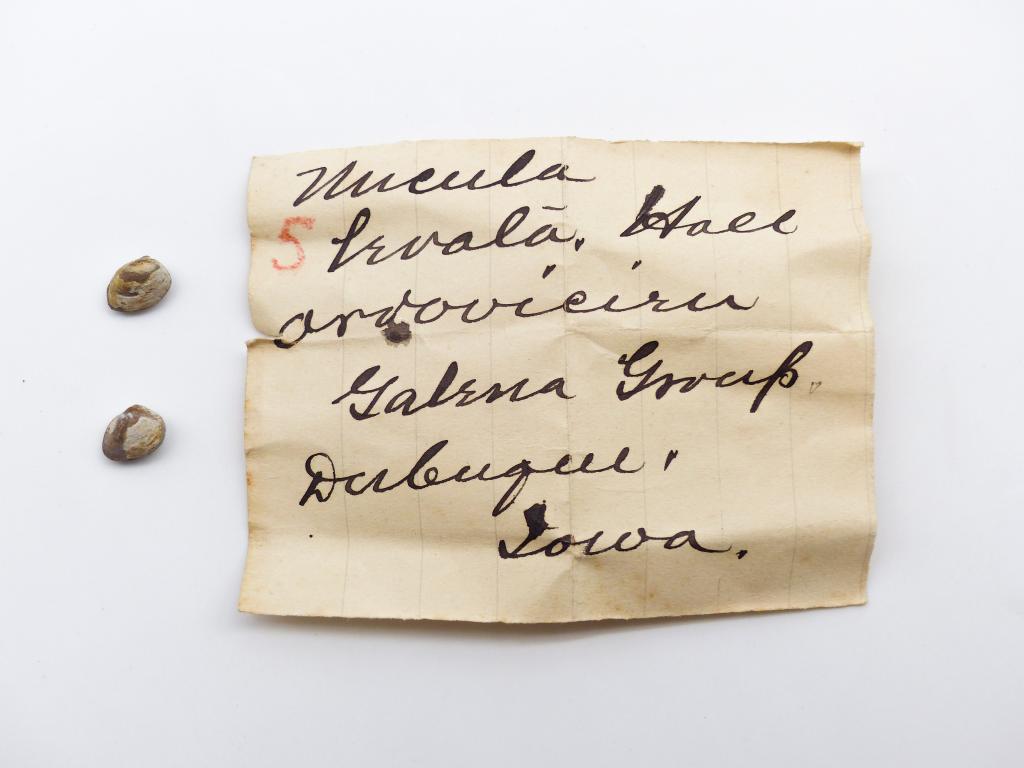 Nucula
5 levata. Hall
Ordovician
Galena Group.
Dubuque.
Iowa.